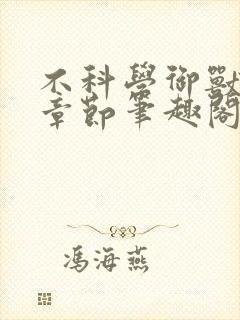 不科學御獸
章節筆趣閣
馮海燕